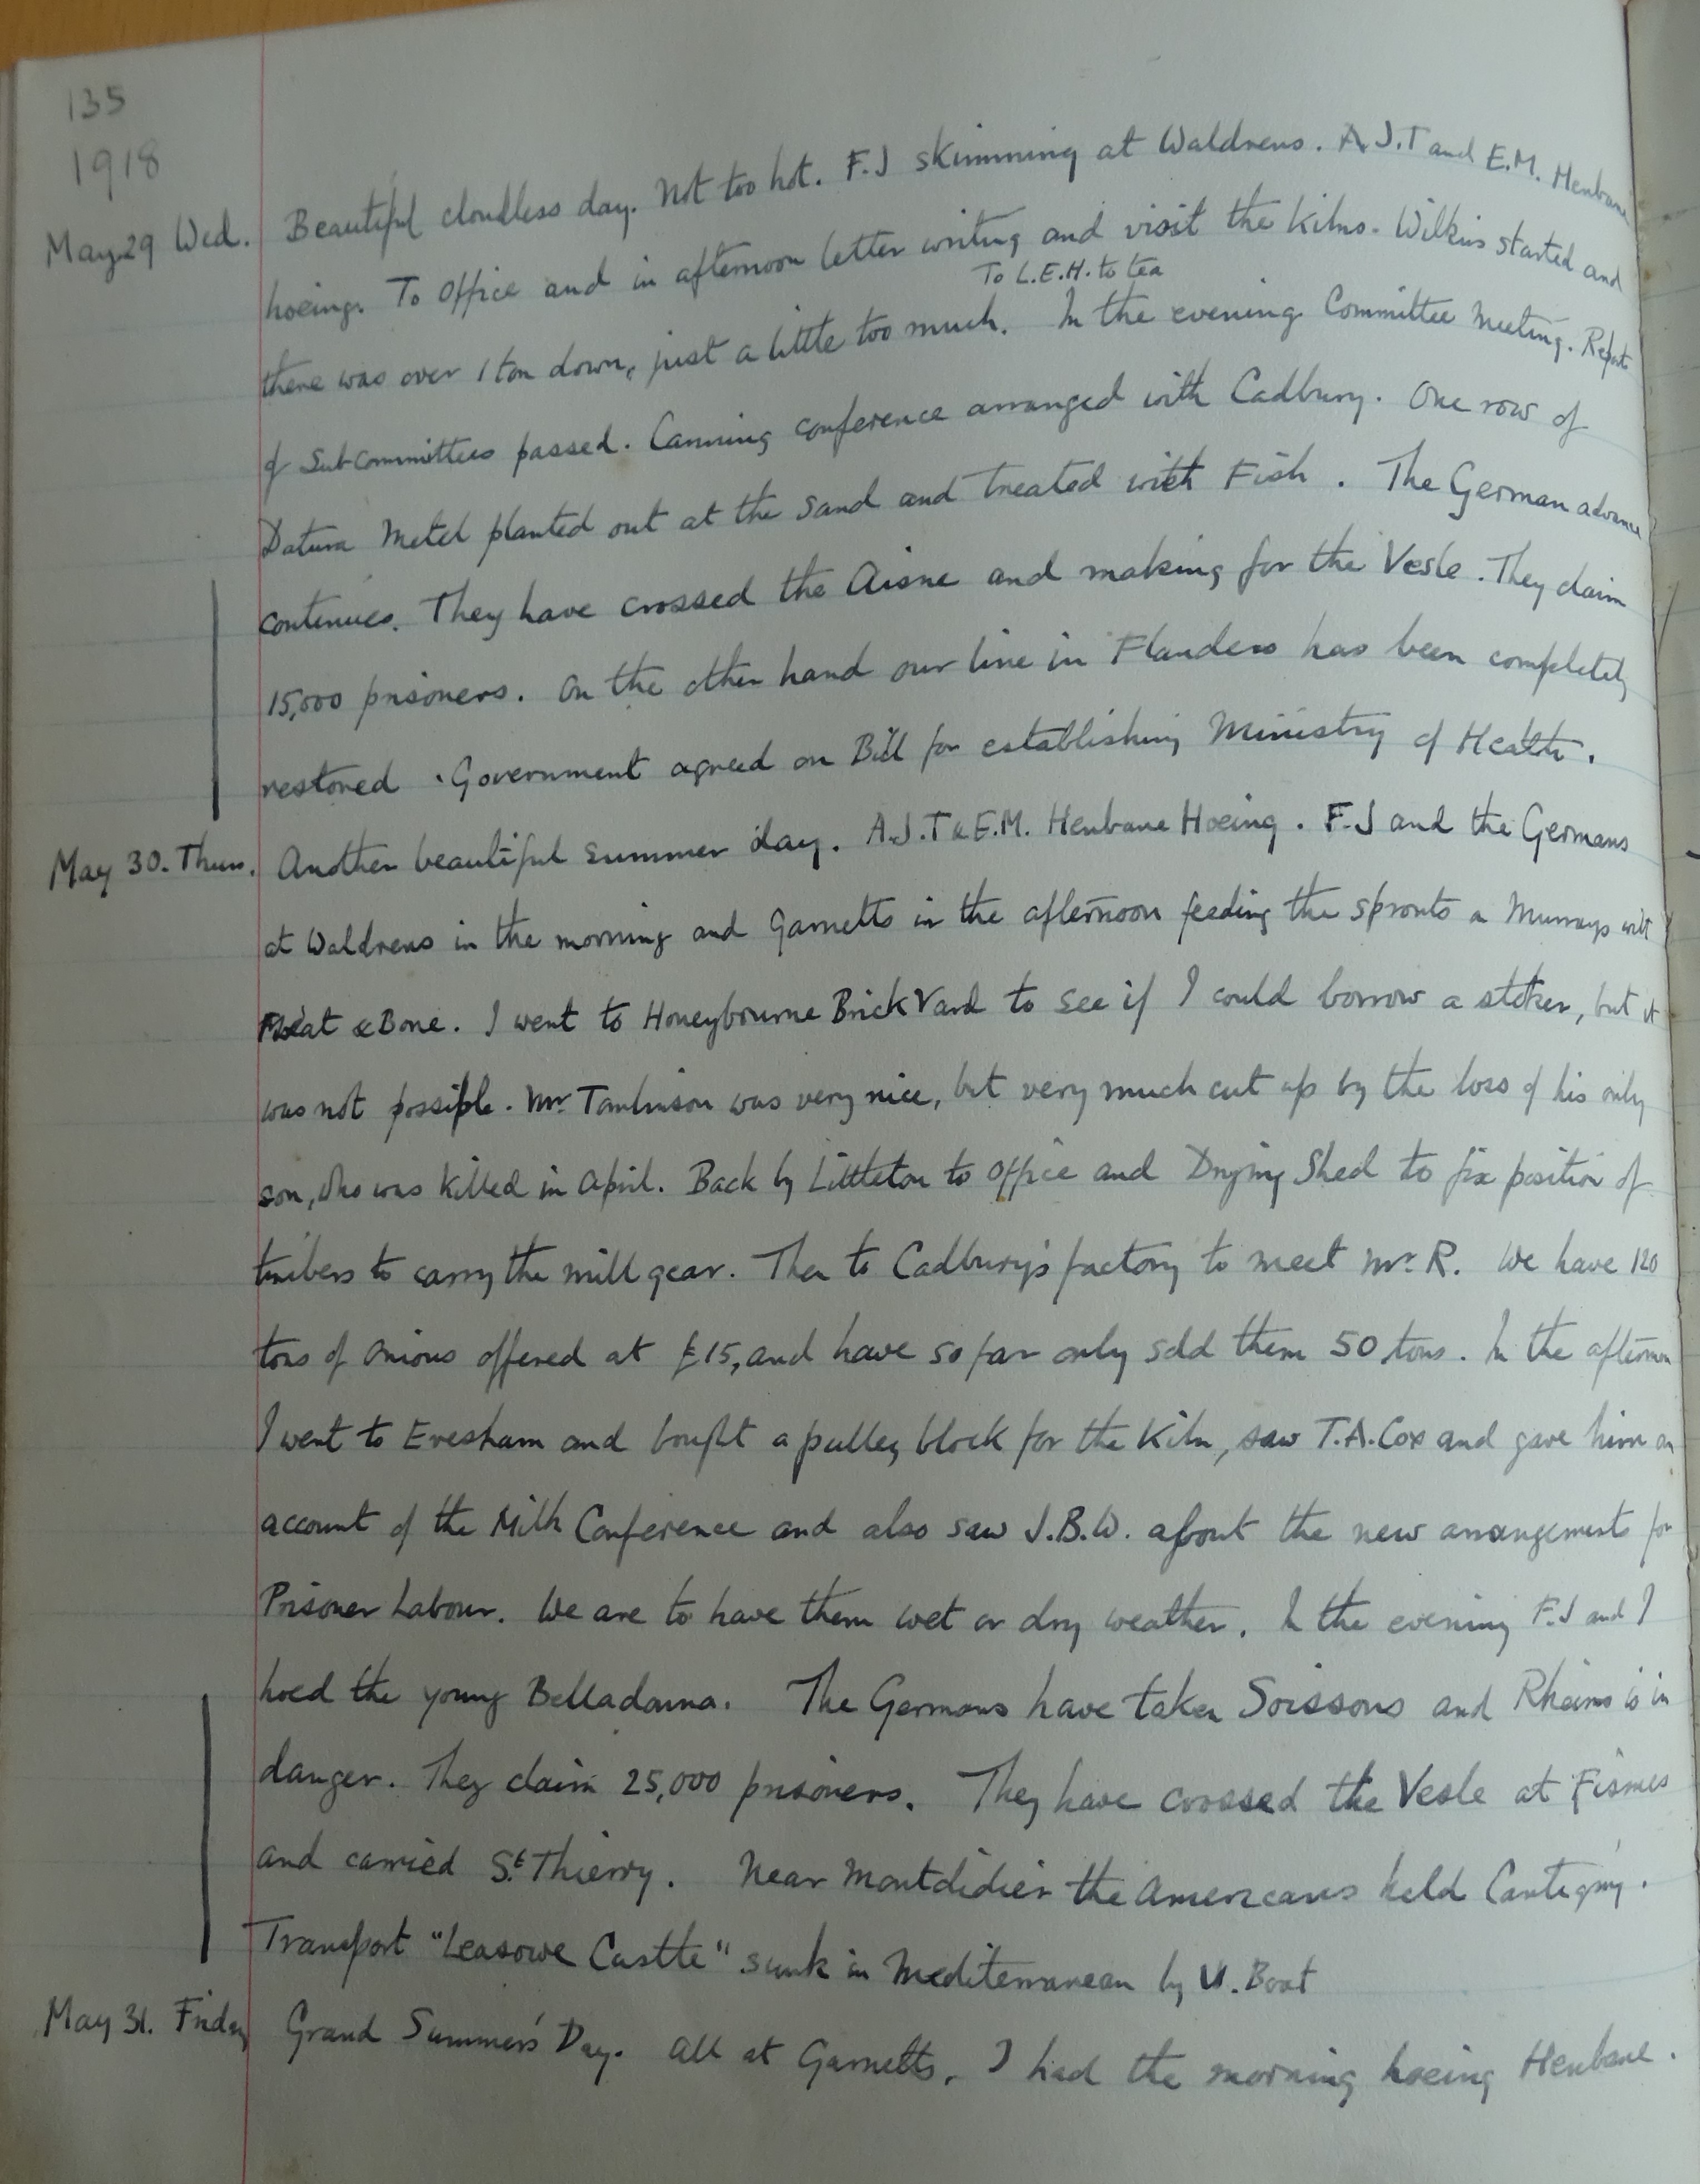 135
1918
May 29 Wed. Beautiful cloudless day. Not too hot. F.J skimming at Waldrens. A.J.T and E.M. Henbane
hoeing. To Office and in afternoon letter writing and visit the Kilns. Wilkins started and
To L.E.H. to tea
there was over 1 ton down, just a little too much. In the evening Committee Meeting. Reports
of Sub-Committees passed. Canning conference arranged with Cadbury. One row of
Datura Metel planted out at the Sand and treated with Fish. The German advance
contenues. They have crossed the Aisne and making for the Vesle. They claim
15,000 prisoners. On the other hand our line in Flanders has been completely
restored. Government agreed on Bill for establishing Ministry of Health.
May 30. Thurs. Another beautiful summer day. A.J.T & E.M. Henbane Hoeing. F.J and the Germans
at Waldrens in the morning and Garnetts in the afternoon feeding the sprouts a Murrays with
Meat & Bone. I went to Honeybourne Brick Yard to see if I could borrow a stoker, but it
was not possible. Mr Tomlinson was very nice, but very much cut up by the loss of his only
son, who was killed in April. Back by Littleton to Office and Drying Shed to fix position of
timbers to carry the mill gear. Then to Cadbury's factory to meet Mr. R. We have 120
tons of Onions offered at £15, and have so far only sold them 50 tons. In the afternoon
I went to Evesham and bought a pulley block for the Kiln, saw T.A. Cox and gave him an
account of the Milk Conference and also saw J.B.W. about the new arrangements for
Prisoner Labour. We are to have them wet or dry weather. In the evening F.J and I
hoed the young Belladonna. The Germans have taken Soissons and Rheims is in
danger. They claim 25,000 prisoners. They have crossed the Vesle at Fismes
and carried St. Thierry. Near Montdidier the Americans held Cantigny.
Transport "Leasowe Castle" sunk in Mediterranean by U. Boat
May 31. Friday Grand Summer's Day. All at Garnetts. I had the morning hoeing Henbane.